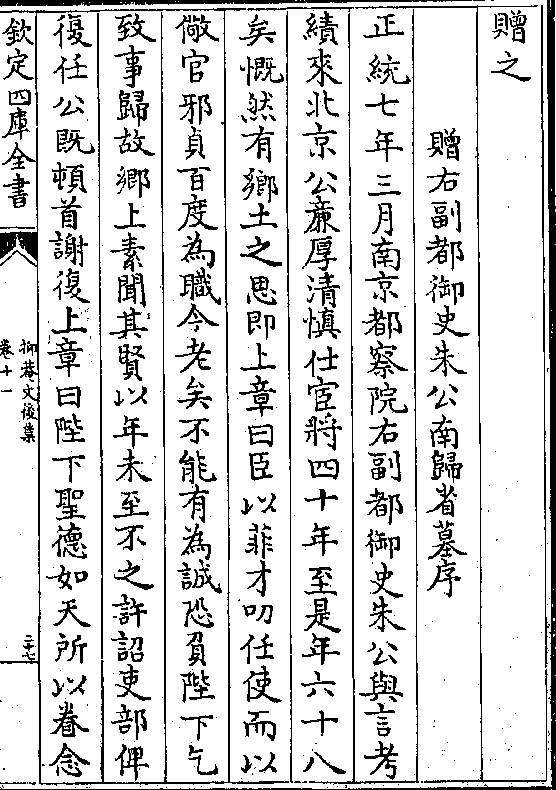 贈之
贈右副都御史朱公南歸省墓序
正統七年三月南京都察院右副都御史朱公與言考
績來北京公亷厚清慎仕宦將四十年至是年六十八
矣慨然有鄉土之思即上章曰臣以菲才叨任使而以
儆官邪貞百度為職今老矣不能有為誠恐負陛下乞
致事歸故鄉上素聞其賢以年未至不之許詔吏部俾
復任公既頓首謝復上章曰陛下聖德如天所以眷念
欽定四庫全書
抑菴文後集
卷十一
二十七